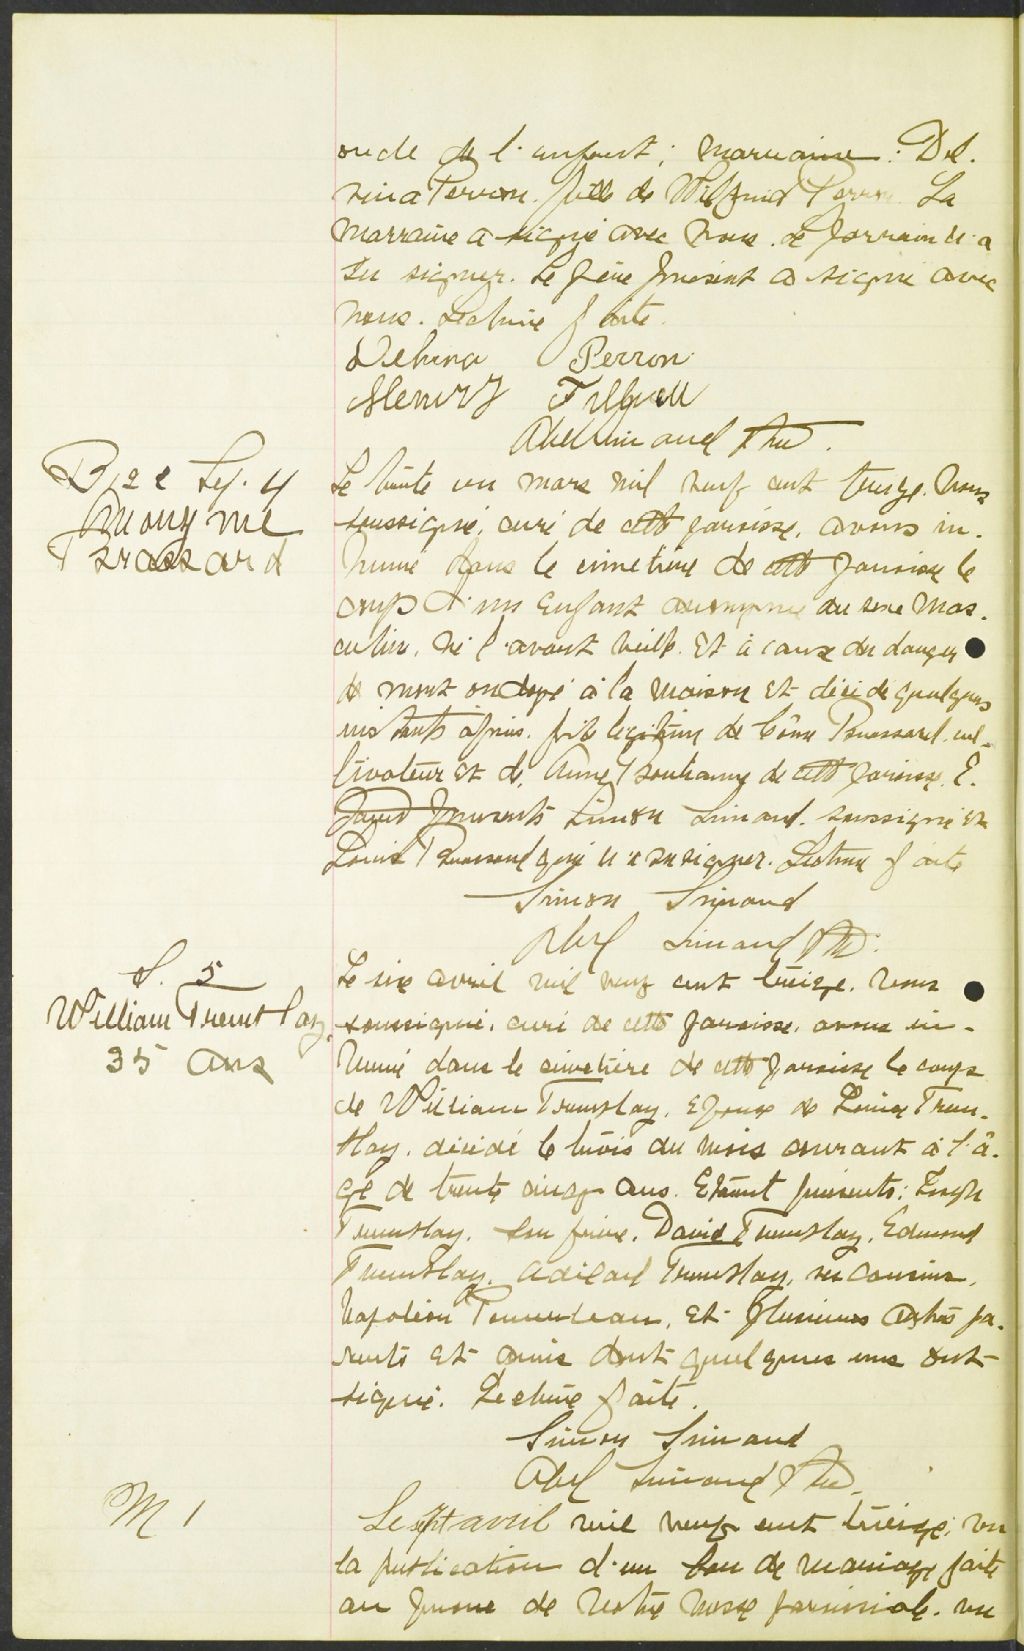 oncle de l'enfant; marraine: Del-
vina Perron, fille de Wilfrid Perron. La
marraine a signé avec nous. Le parrain n'a
su signer. Le père présent a signé avec
nous. Lecture faite.
Delvina Perron
Henry
Abel Simard Ptre.
B 22 Sép. 4
Anonyme
Brassard
Le trente un mars mil neuf cent treize, nous
soussigné, curé de cette paroisse, avons in-
humé dans le cimetière de cette paroisse le
corps d'un enfant anonyme du sexe mas-
culin, né l'avant veille, et à cause du danger
de mort ondoyé à la maison et décédé quelques
instants après, fils légitime de Côme Brassard, cul-
tivateur et de Anne de cette paroisse. E-
taient présents Simon Simard soussigné et
Louis Brassard qui n'a su signer. Lecture faite
Simon Simard
Abel Simard Ptre.
S. 5
William Tremblay
35 ans
Le six avril mil neuf cent treize, nous
soussigné, curé de cette paroisse, avons in-
humé dans le cimetière de cette paroisse le corps
de William Tremblay, époux de Louise Trem-
blay, décédé le trois du mois courant à l'â-
ge de trente cinq ans. Etaient présents: Joseph
Tremblay, son frère, David Tremblay, Edmond
Tremblay, Adélard Tremblay, ses cousins,
Napoléon et plusieurs autres pa-
rents et amis dont quelques uns ont
signé. Lecture faite.
Simon Simard
Abel Simard Ptre.
M 1
Le sept avril mil neuf cent treize, vu
la publication d'un ban de mariage faite
au prone de notre messe paroissiale, vu